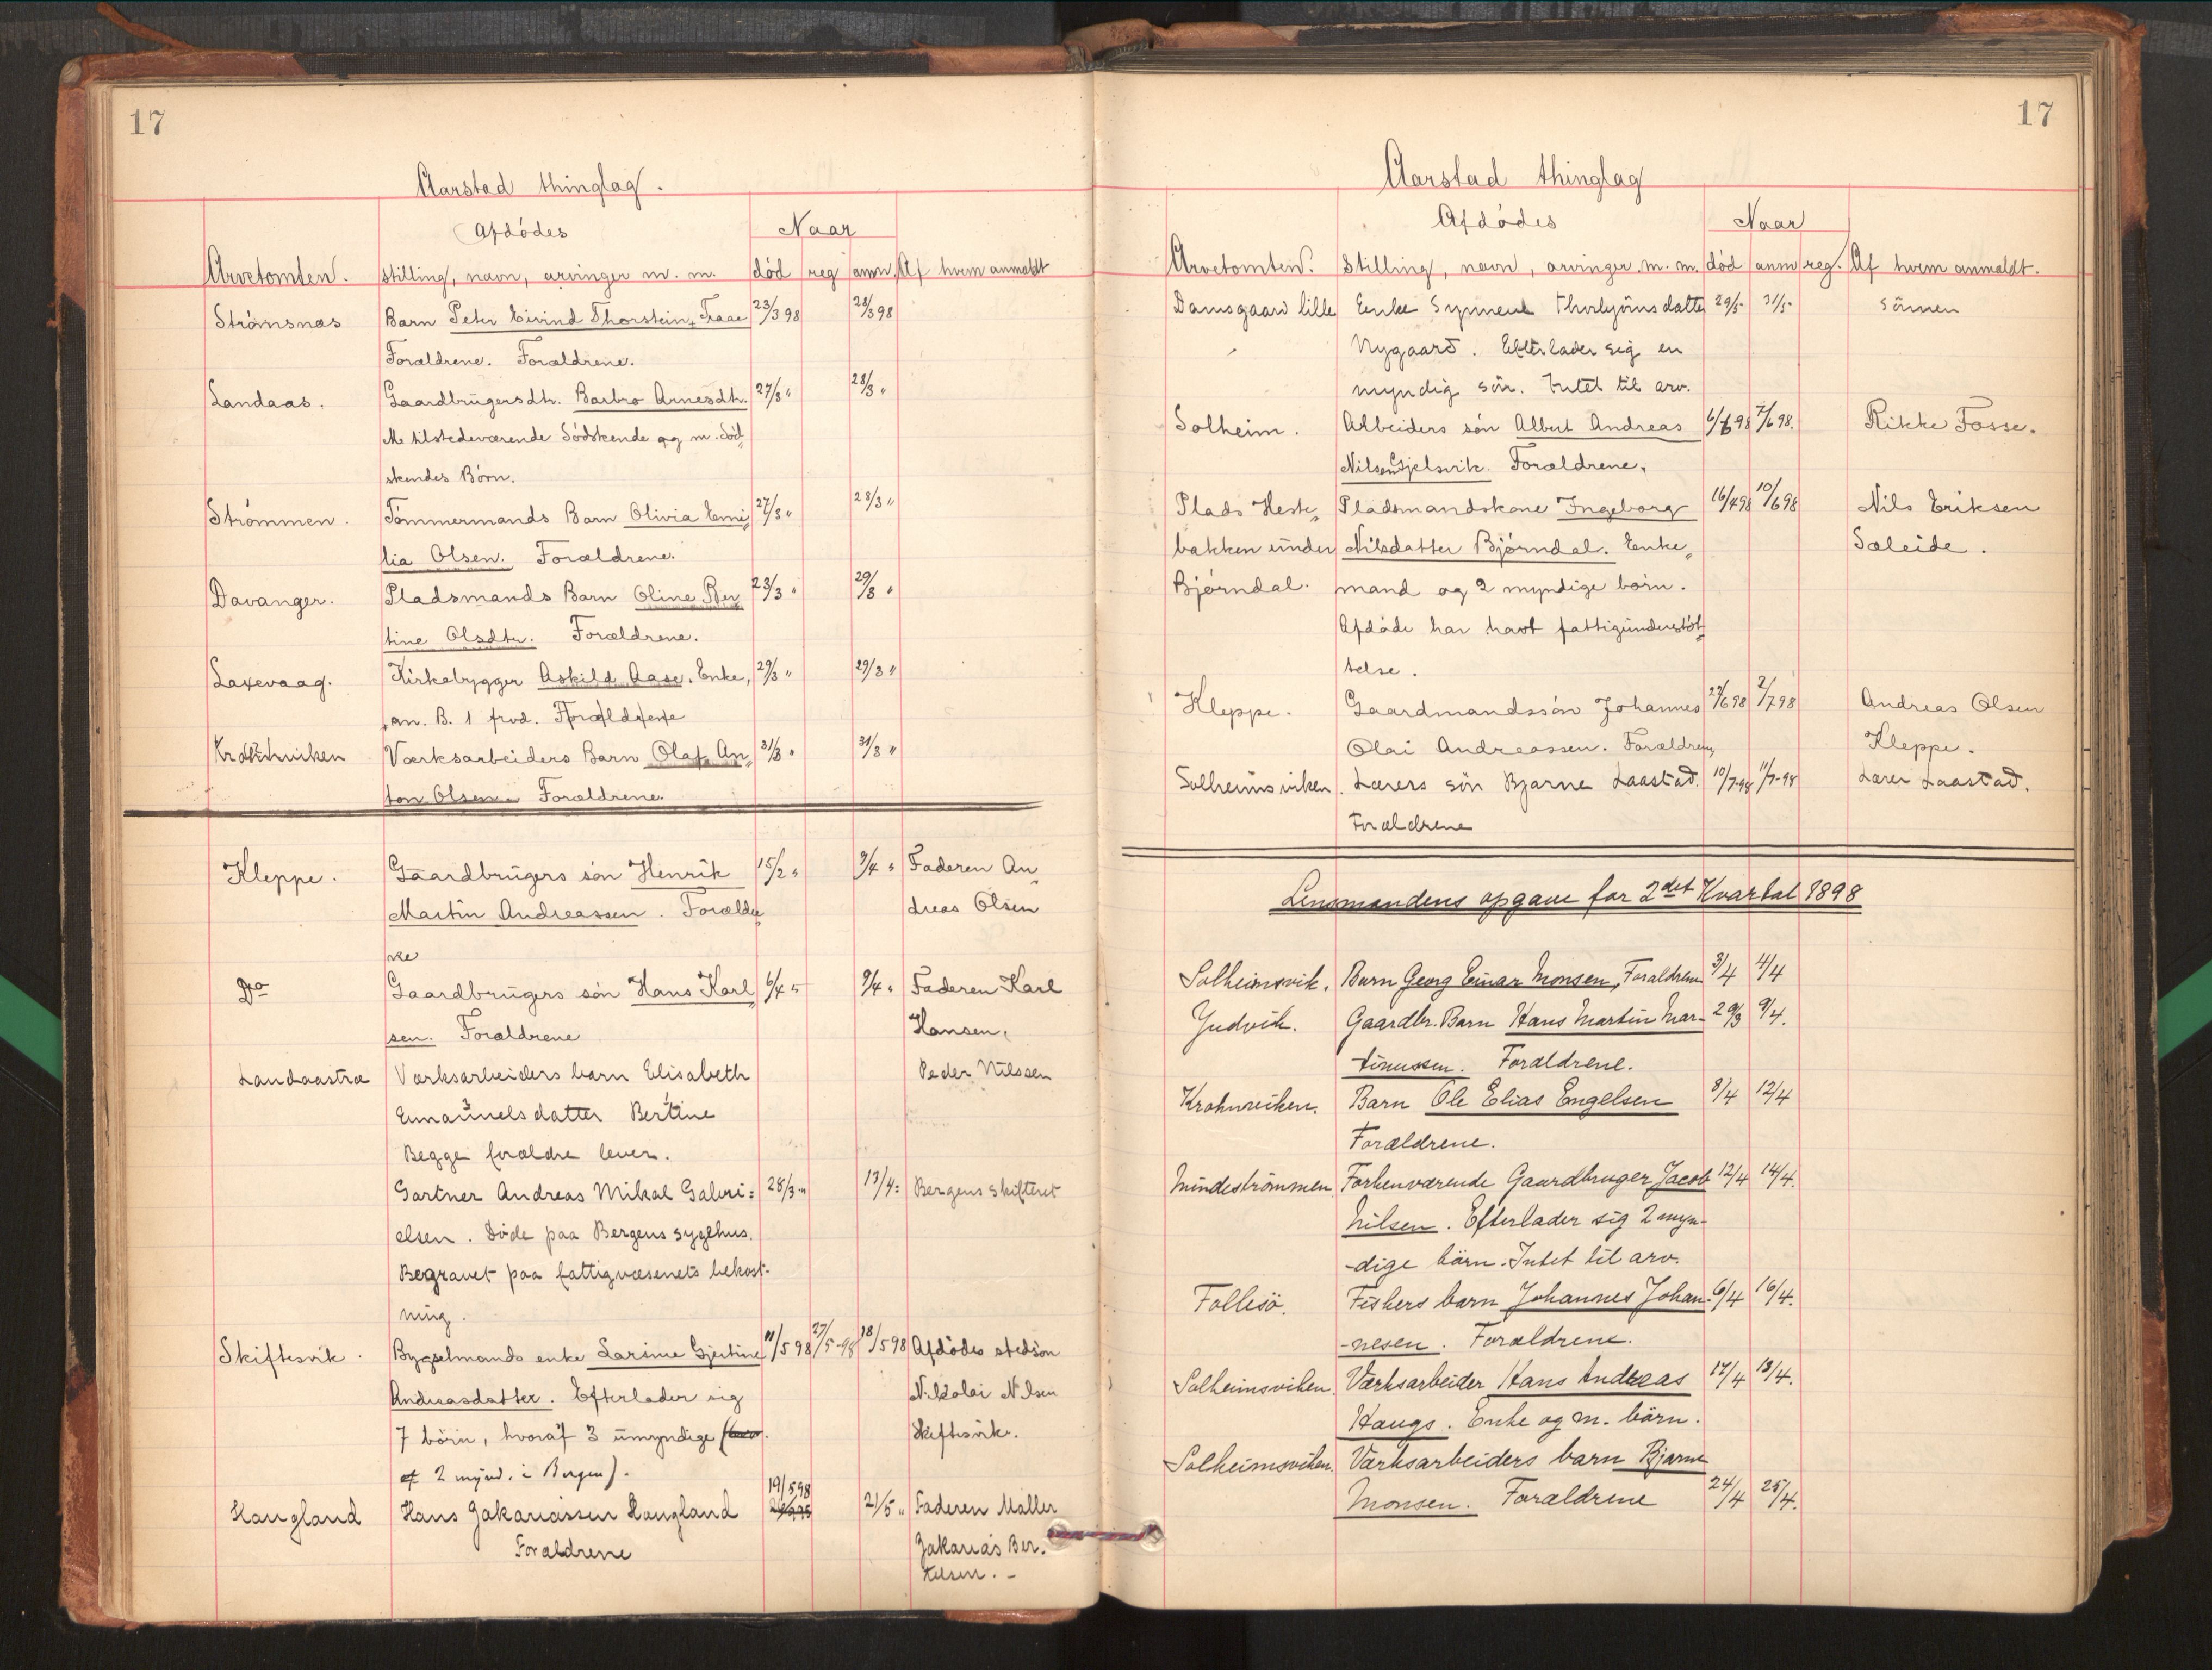 17
Aarstad thinglag.
Afdödes
Naar
Arvetomten. stilling, navn, arvinger m. m. död reg anm. Af hvem anmeldt
Strömsnæs Barn Peter Eivind Thorstein, Traae 23/3 98 28/3 98
Forældrene. Forældrene.
Landaas. Gaardbrügersdtr. Barbro Arnesdtr. 27/3 " 28/3 "
M. tilstedeværende Södskende og m. Söd„
skendes Börn.
Strömmen. Tömmermands Barn Olivia Emi„ 27/3 " 28/3 "
lia Olsen. Forældrene.
Davanger. Pladsmands Barn Oline Ber„ 23/3 " 29/3 "
tine Olsdtr. Forældrene.
Laxevaag. Kirkebygger Askild Aase. Enke, 29/3 " 29/3 "
an. B. 1 frvd. Forældrene
Krohnviken Værksarbeiders Barn Olaf An„ 31/3 " 31/3 "
ton Olsen. Forældrene.
Kleppe. Gaardbrügers sön Henrik 15/2 " 9/4 " Faderen An„
Martin Andreassen. Foræld„ dreas Olsen
rne
Do Gaardbrügers sön Hans Karl„ 6/4 " 9/4 " Faderen Karl
sen. Forældrene Hansen.
Landaastræ Værksarbeiders barn Elisabeth Peder Nilssen
Emanüels datter Bertine
Begge forældre lever.
Gartner Andreas Mikal Gabri= 28/3 " 13/4 = Bergens skifteret
elsen. Döde paa Bergens sygehus.
Begravet paa fattigvæsenets bekost-
ning.
Skiftesvik. Bygselmands enke Larsine Gjertine 11/5 98 27/5-98 18/5 98 Afdödes stedsön
Andreasdatter. Efterlader sig Nikolai Nilsen
7 börn, hvoraf 3 ümyndige Skiftesvik.
2 mynd. i Bergen).
Haugland Hans Zakariassen Haugland 19/5 98 21/5 " Faderen Møller
Forældrene Zakarias Ber-
telsen. -
17
Aarstad thinglag
Afdödes
Naar
Arvetomten. Stilling, navn, arvinger m. m. död anm reg. Af hvem anmeldt.
Damsgaard lille Enke Synneve Thorbjörnsdatter 29/5- 31/5- Sönnen
Nygaard. Efterlader sig en
myndig sön. Intet til arv.
Solheim. Arbeiders sön Albert Andreas 6/6 98 7/6 98. Rikke Fosse.
Nilsen Gjelsvik. Forældrene.
Plads Heste„ Pladsmandskone Ingeborg 16/4 98 10/6 98 Nils Eriksen
bakken ünder Nilsdatter Björndal. Enke„ Sæleide.
Björndal. mand og 2 myndige börn.
Afdöde har havt fattigünderstöt„
telse.
Kleppe. Gaardmandssön Johannes 29/6 98 2/7 98 Andreas Olsen
Olai Andreassen. Forældrene, Kleppe.
Solheimsviken. Lærers sön Bjarne Laastad. 10/7-98 11/7-98 Lærer Laastad.
Forældrene
Lensmandens opgave for 2det Kvartal 1898
Solheimsvik. Barn Georg Einar Monsen, Forældrene 3/4 4/4
Judvik. Gaardbr. Barn Hans Martin Mar- 29/3 9/4.
tinussen. Forældrene.
Krohnviken. Barn Ole Elias Engelsen 8/4 12/4
Forældrene.
Mindeströmmen Forhenværende Gaardbruger Jacob 12/4 14/4.
Nilsen. Efterlader sig 2 myn-
-dige börn. Intet til arv.
Follesö. Fiskers barn Johannes Johan- 6/4 16/4.
-nesen. Forældrene.
Solheimsviken. Værksarbeider Hans Andreas 17/4 18/4.
Haugs. Enke og m. börn.
Solheimsviken. Værksarbeiders barn Bjarne
Monsen. Forældrene 24/4 25/4.